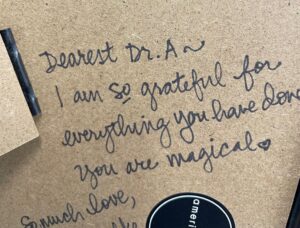 Dearest Dr. A~
I am so grateful for
everything you have done
you are magical♥
So much love,
ameri